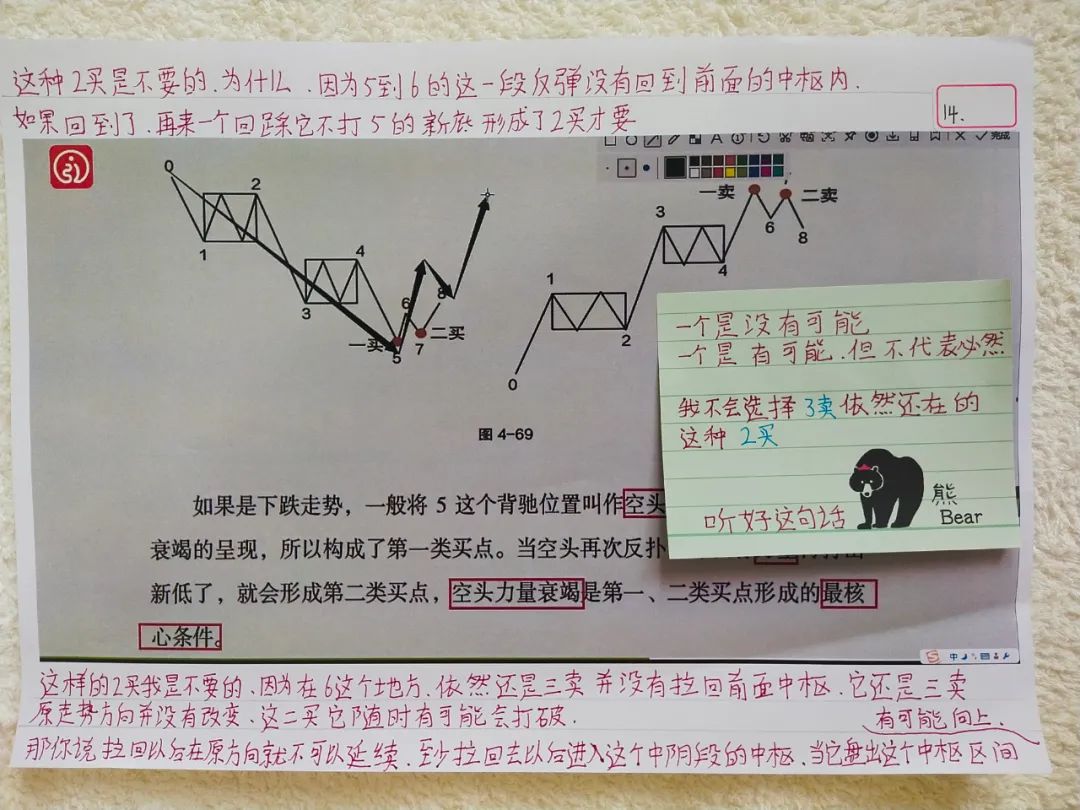 这种2买是不要的.为什么.因为5到6的这一段反弹没有回到前面的中枢内.
如果回到了.再来一个回踩它不打5的新底形成了2买才要
14.
0
2
1
4
3
6
8
一买
5
7
二买
一卖
二卖
3
6
8
1
4
2
0
图 4-69
一个是没有可能
一个是有可能.但不代表必然
我不会选择3卖依然还在的
这种2买
听好这句话
熊
Bear
如果是下跌走势，一般将 5 这个背驰位置叫作空头
衰竭的呈现，所以构成了第一类买点。当空头再次反扑
新低了，就会形成第二类买点，空头力量衰竭是第一、二类买点形成的最核
心条件。
中
这样的2买我是不要的.因为在6这个地方.依然还是三卖并没有拉回前面中枢.它还是三卖
原走势方向并没有改变.这二买它随时有可能会打破.
有可能向上.
那你说拉回以后在原方向就不可以延续.至少拉回去以后进入这个中阴段的中枢.当它盘出这个中枢区间